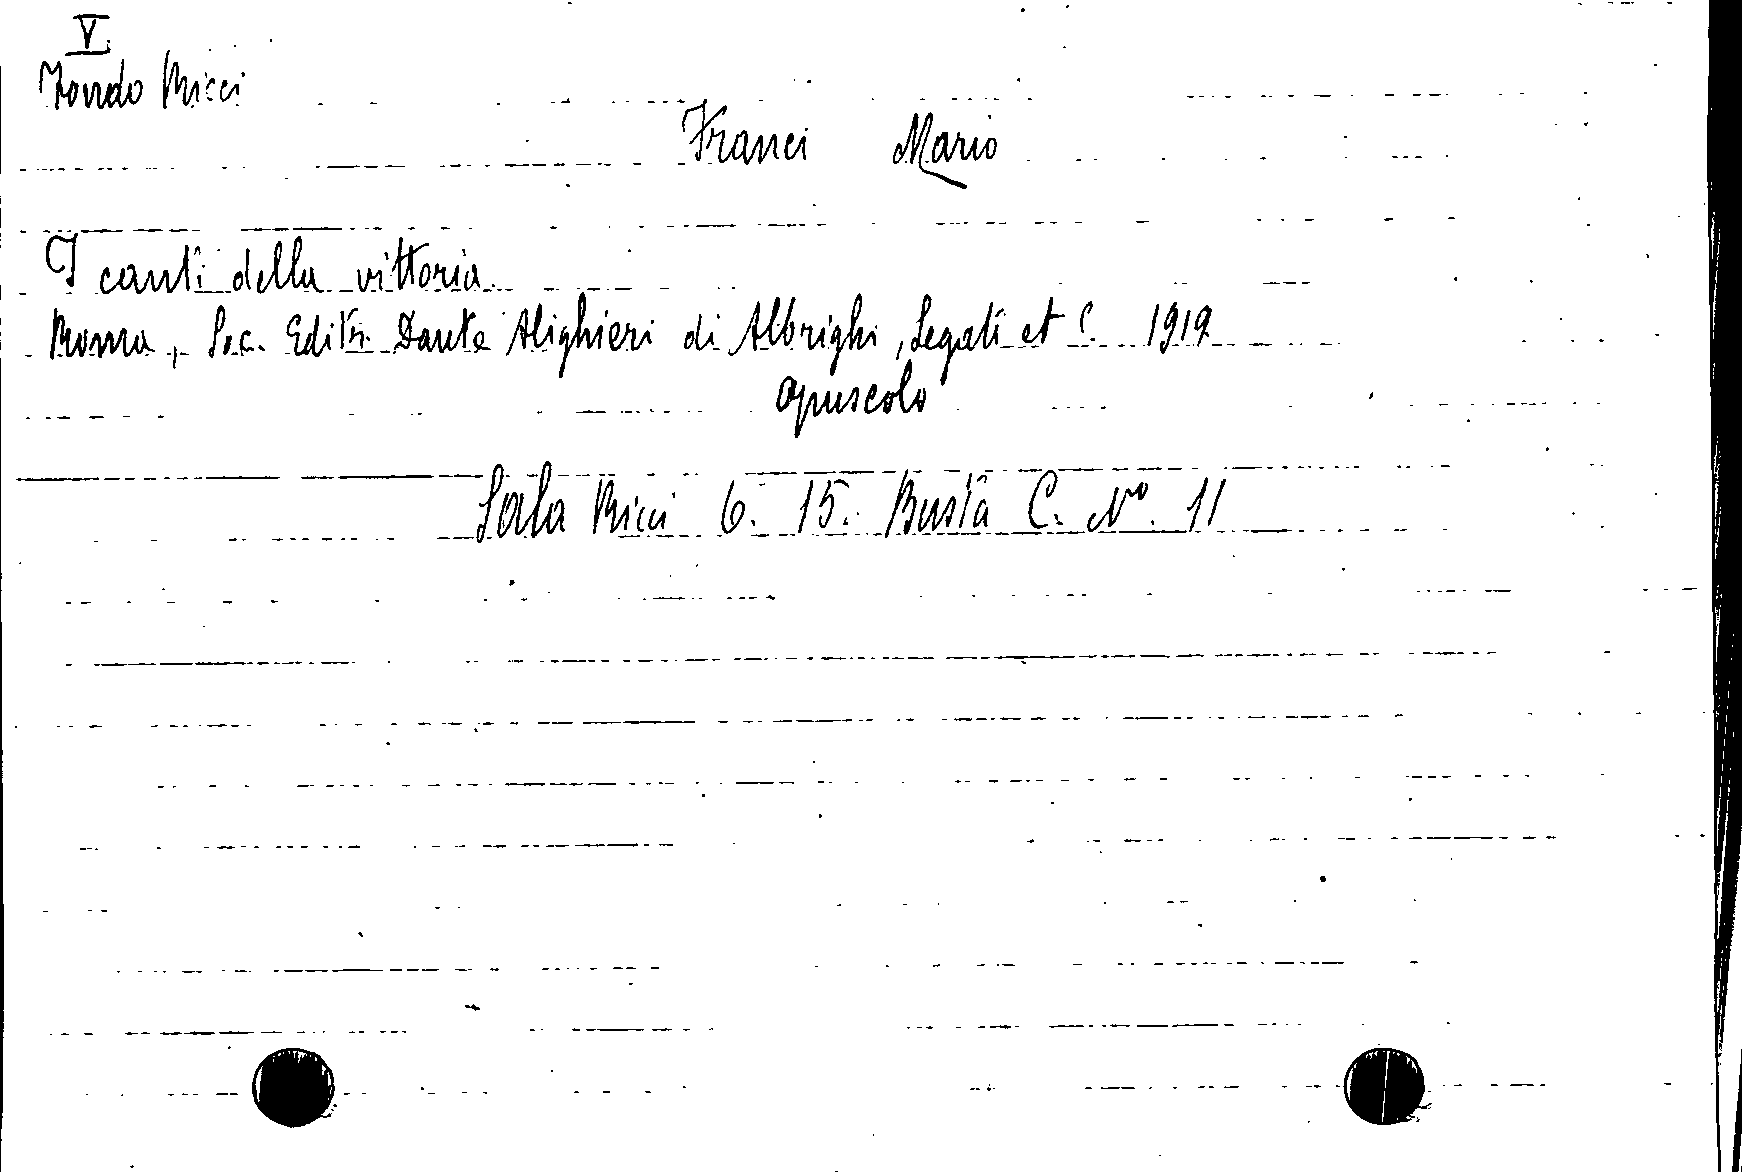 V.
Fondo Ricci
Franci Mario
I canti della vittoria
Roma, Soc. Editr. Dante Alighieri di Albrighi, Segati et C. 1919
opuscolo
Sala Ricci 6. 15. Busta C. Nº. 11